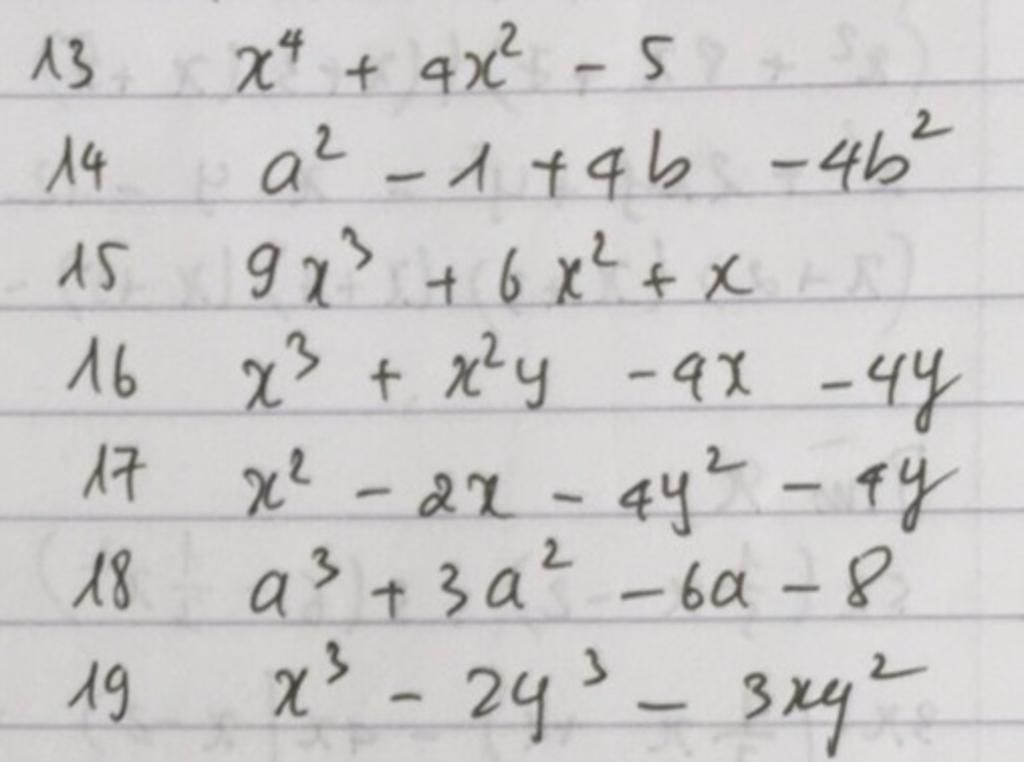 13 x⁴ + 4x² - 5
14 a² - 1 + 4b - 4b²
15 9x³ + 6x² + x
16 x³ + x²y - 4x - 4y
17 x² - 2x - 4y² - 4y
18 a³ + 3a² - 6a - 8
19 x³ - 2y³ - 3xy²